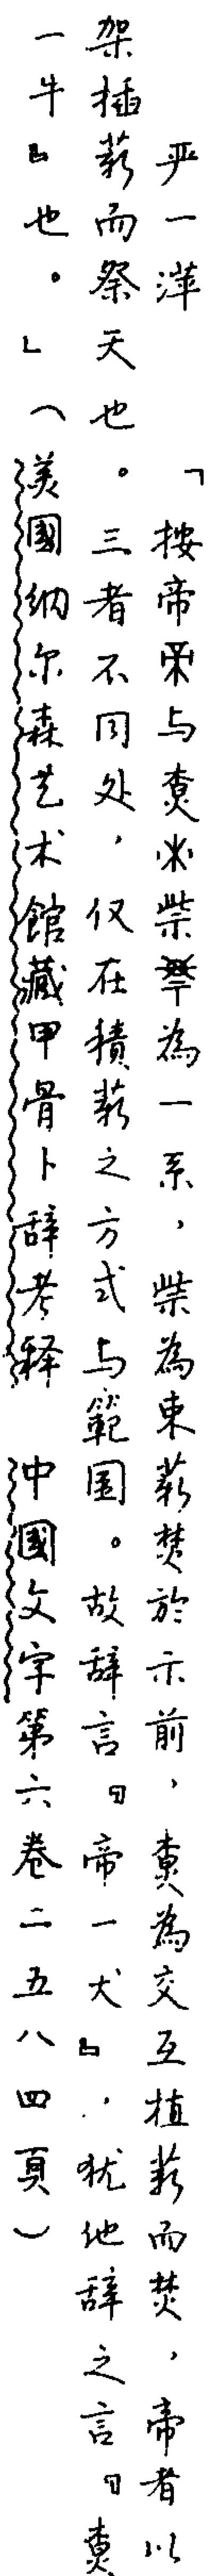 严一萍　「按帝与尞柴為一系，柴為束薪焚於示前，尞為交互植薪而焚，帝者以
架插薪而祭天也。三者不同处，仅在積薪之方式与範圍。故辞言『帝一犬』，犹他辞之言『尞
一牛』也。」（美國纳尔森艺术館藏甲骨卜辞考释　中國文字第六卷二五八四頁）